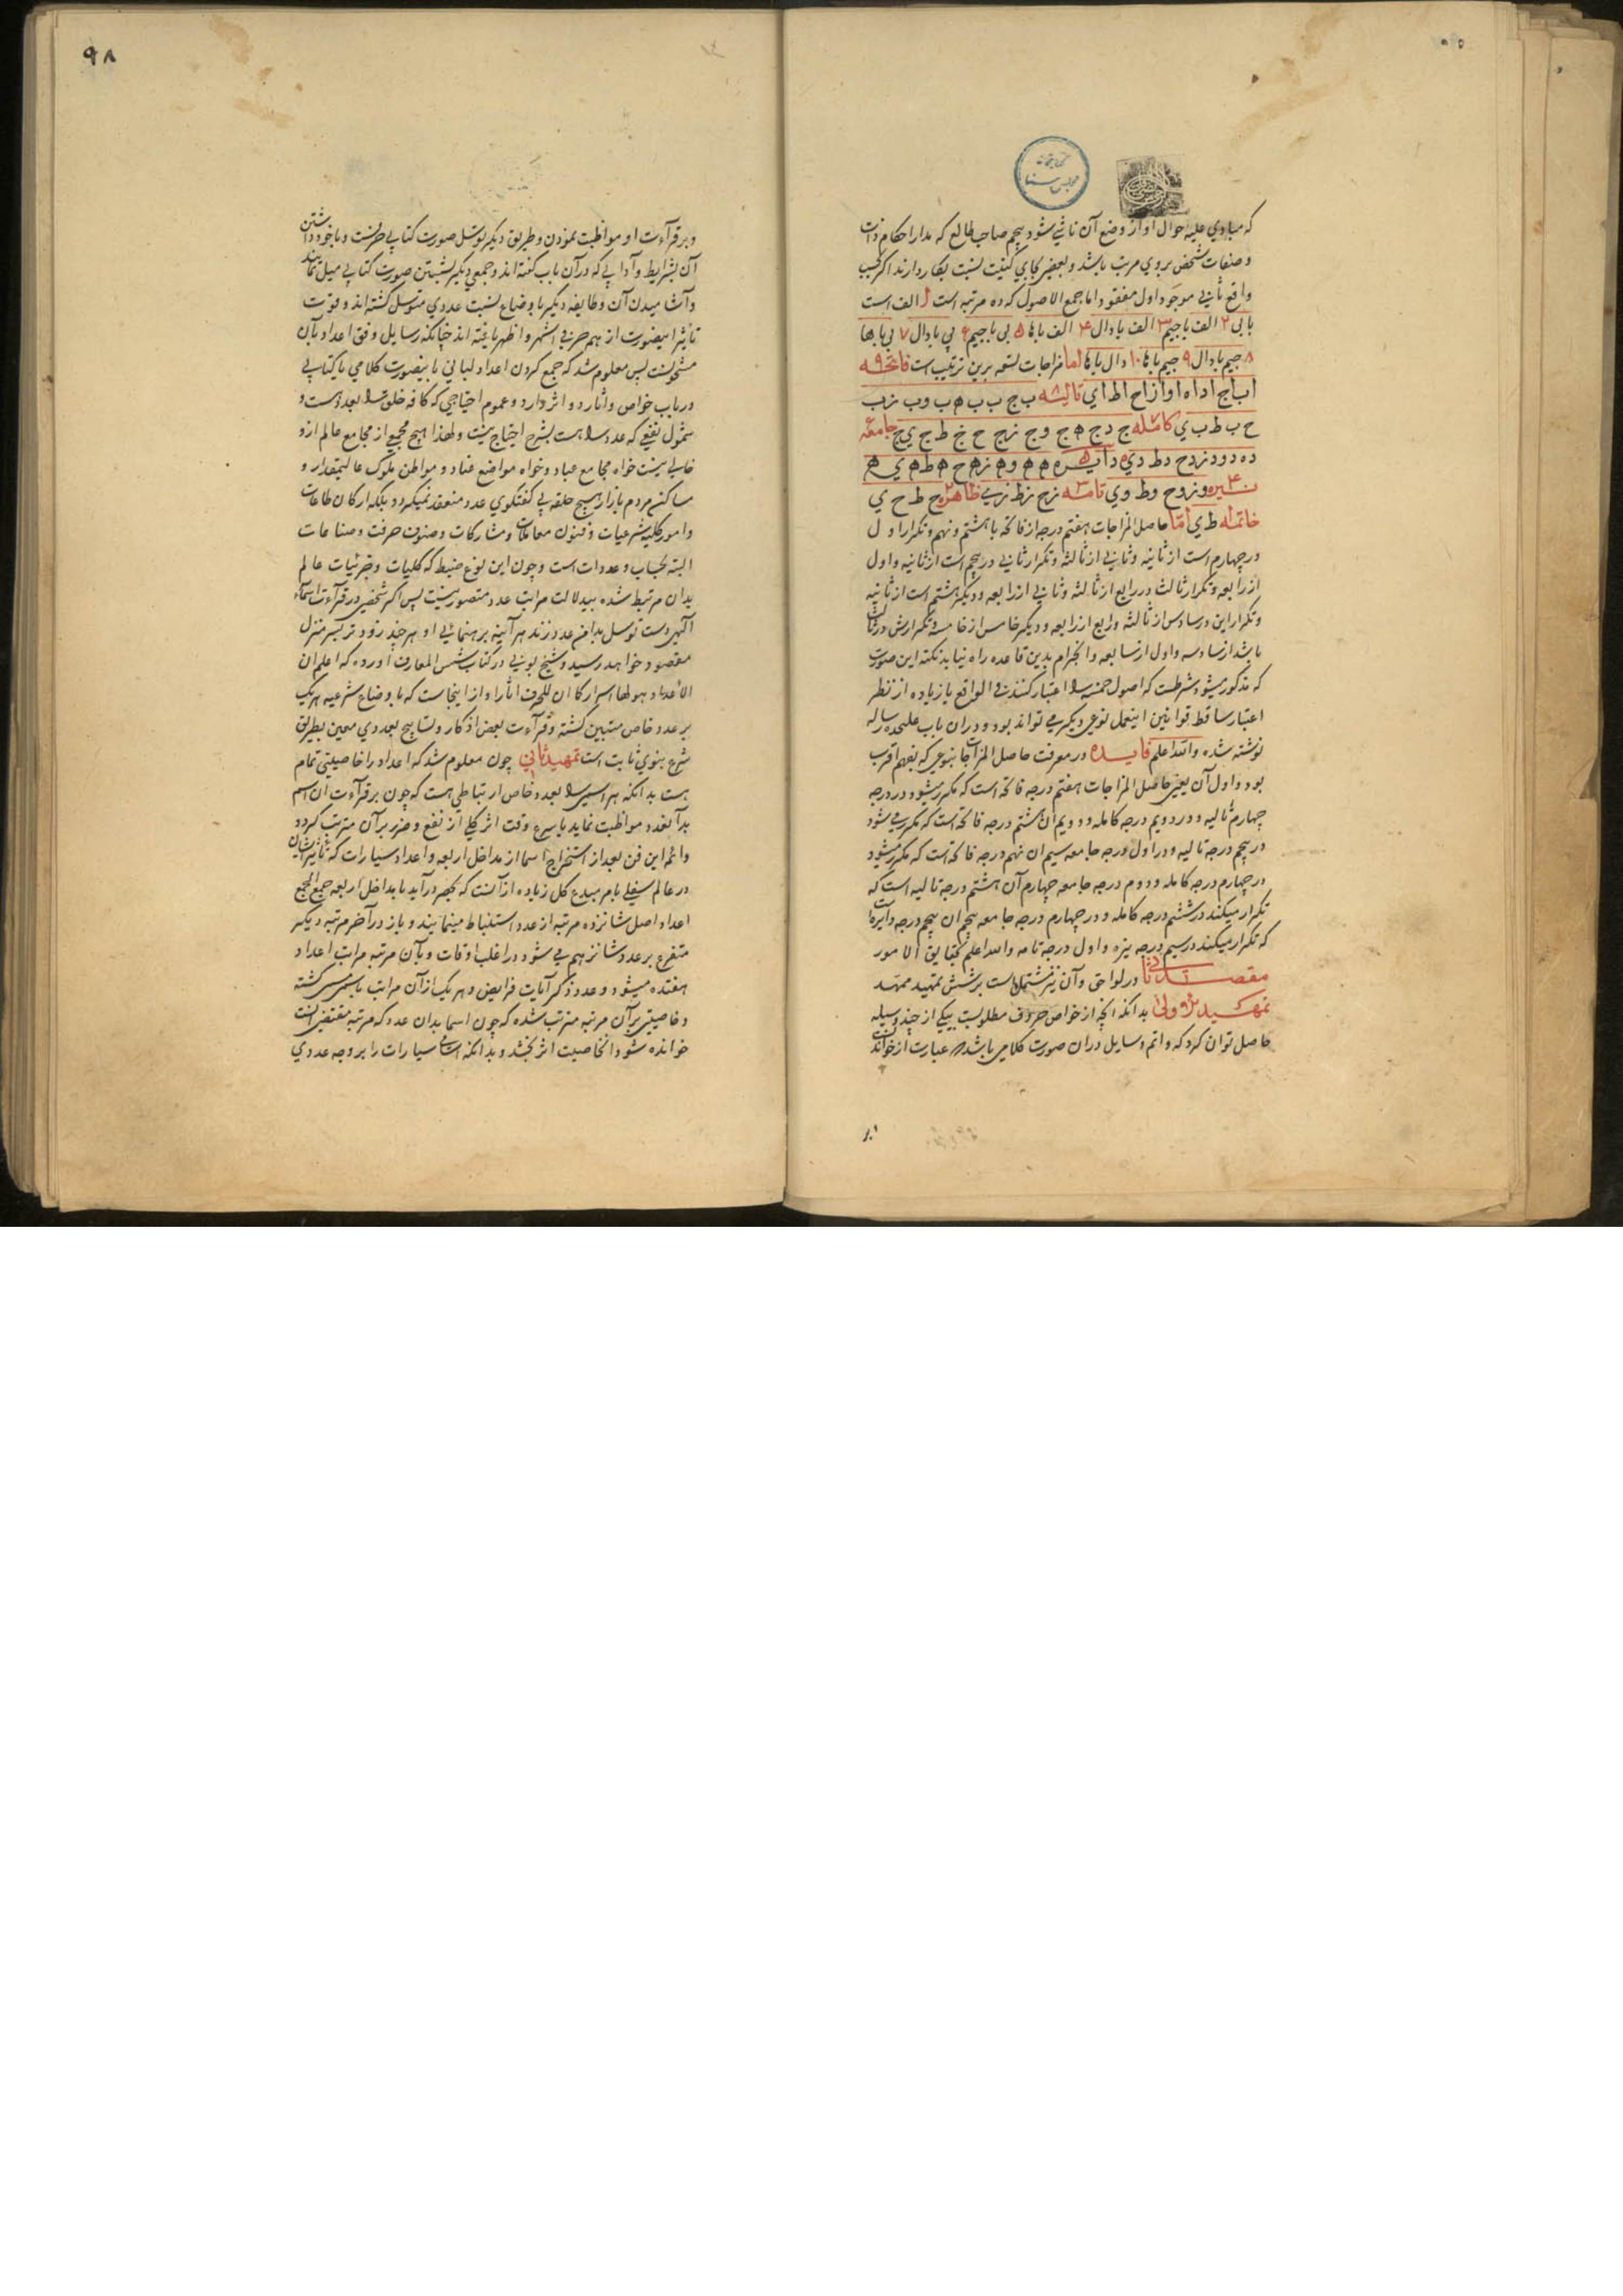 که مبادي علیه احوال او از وضع آن ناشي شود پنجم صاحب طالع که مدار احکام ذات
و صفات شخص بروي مرتب باشد و بعضي بجاي کنیت نسبت بکار دارند اکر بحسب
واقع ثاني موجود و اول مفقود و اما جمع الاصول که ده مرتبه است ا الف است
بابی ۲ الف باجیم ۳ الف بادال ۴ الف باها ۵ بی باجیم ۶ بي بادال ۷ بي باها
۸ جیم بادال ۹ جیم باها ۱۰ دال باها اما مزاجات تسعه برین ترتیب است فاتحه ۹
اب اج اد اه او از اح اط اي تالیه ب ج ب د ب ه ب و ب ز ب
ح ب ط ب ي کامله ج د ج ه ج و ج ز ج ح ج ط ج ي جامعه
ده دو دز دح دط دي دایره ه و ه ز ه ح ه ط ه ي
نیره وز وح وط وي تامه زح زط زي ظاهره ح ط ح ي
خاتمه ط ي اما حاصل المزاجات هفتم درجه از فاتحه با هشتم و نهم و تکرار اول
در چهارم است از ثانیه و ثاني از ثالثه و تکرار ثاني در پنجم است از ثانیه و اول
از رابعه و تکرار ثالث در رابع از ثالثه و ثاني از رابعه و دیکر هشتم است از ثانیه
و تکرار این در سادس از ثالثه و رابع از رابعه و دیکر خامس از خامسه و تکرارش در ثالث
باشد از سادسه و اول از سابعه و انخرام بدین قاعده راه نیابد نکته این صورت
که مذکور میشود شرطست که اصول خمسه را اعتبار کنند في الواقع یا زیاده از نظر
اعتبار ساقط قوانین اینعمل نوعي دیکر مي تواند بود و دران باب علیحده رساله
نوشته شده والله اعلم فایده در معرفت حاصل المزاجات بنوعي که بفهم اقرب
بود و اول آن یعني حاصل المزاجات هفتم درجه فاتحه است که مکرر میشود در درجه
چهارم تالیه و در دویم درجه کامله و دویم آن هشتم درجه فاتحه است که مکرر مي شود
در پنجم درجه تالیه و در اول درجه جامعه سیم ان نهم درجه فاتحه است که مکرر میشود
در چهارم درجه کامله و دوم درجه جامعه چهارم آن هشتم درجه تالیه است که
تکرار میکند در ششم درجه کامله و در چهارم درجه جامعه پنجم ان پنجم درجه دایره است
که تکرار میکند در سیم درجه نیره و اول درجه تامه والله اعلم بحقایق الامور
مقصد ثاني در لواحق وآن نیز مشتمل است بر شش تمهید ممهد
تمهید اولي بدانکه انچه از خواص حروف مطلوبست بیکي از چند وسیله
حاصل توان کرد که واتم وسایل دران صورت کلامي باشد و عبارت از خواندنست
و بر قرآءت او مواظبت نمودن و طریق دیکر توسل صورت کتابي حرفست و با خود داشتن
آن بشرایط و آدابي که درآن باب کفته اند و جمعي دیکر بشستن صورت کتابي میل نمایند
و آشامیدن آن و طایفه دیکر باوضاع نسبت عددي متوسل کشته اند و قوت
تاثیر اینصورت از هم حرفي اشهر و اظهر یافته اند چنانکه رسایل وفق اعداد بآن
مشحونست پس معلوم شد که جمع کردن اعداد لساني با اینصورت کلامي یا کتابي
در باب خواص و اثار دو اثر دارد و عموم احتیاجي که کافه خلق را بعدد هست و
شمول نفعي که عدد را هست بشرح احتیاج نیست و لهذا هیچ مجمعي از مجامع عالم ازو
خالي نیست خواه مجامع عباد و خواه مواضع فساد و مواطن ملوک عالیمقدار و
مساکن مردم بازار هیچ حلقه بي کفتکوي عدد منعقد نمیکردد بلکه ارکان طاعات
و امور کلیه شرعیات و فنون معاملات و مشارکات و صنوف حرفت و صناعات
البته بحساب و عدد است و چون این نوع ضبط که کلیات و جزئیات عالم
بدان مرتبط شده بیدلالت مراتب عدد متصور نیست پس اکر شخصي در قرآءت اسماء
الهي دست توسل بدامن عدد زند هر آینه برهنمائي او هر چند زودتر بسر منزل
مقصود خواهد رسید و شیخ بوني در کتاب شمس المعارف آورده که اعلم ان
الاعداد لها اسرار کما ان للحروف اثارا و از اینجاست که باوضاع شرعیه هر یک
بر عدد خاص مبتني کشته و قرآءت بعض اذکار و تسابیح بعددي معین بطریق
شرع نبوي ثابت است تمهید ثاني چون معلوم شد که اعداد را خاصیتي تمام
هست بدانکه هر اسمي را بعدد خاص ارتباطي هست که چون بر قرآءت ان اسم
بدآنعدد مواظبت نماید باسرع وقت اثر کلي از نفع و ضرر برآن مترتب کردد
و ائمه این فن بعد از استخراج اسما از مداخل اربعه و اعداد سیارات که تاثیر ایشان
در عالم سفلي بامر مبدع کل زیاده از آنست که بحصر درآید با مداخل اربعه جمع الجمع
اعداد اصل شانزده مرتبه از عدد استنباط مینمایند و باز در آخر مرتبه دیکر
متفرع بر عدد شانزدهم مي شود در اغلب اوقات و بآن مرتبه مراتب اعداد
هفده میشود و عدد ذکر آیات فرایض و هر یک از آن مراتب باسمي مسمي کشته
و خاصیتي برآن مرتبه مترتب شده که چون اسما بدان عدد که مرتبه مقتضي آنست
خوانده شود آنخاصیت اثر بخشد و بدانکه اسامي سیارات را بر وجه عددي
۹۸